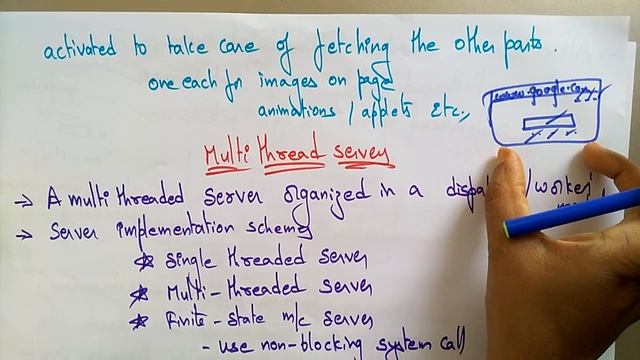 activated to take care of fetching the other parts.
one each for images on page
animations / applets etc.,
www.google.com
Multi thread server
→ A multi threaded server organized in a /worker
→ Server implementation schemes
☆ Single threaded server
☆ Multi-threaded server
☆ Finite-state m/c server
- use non-blocking system call